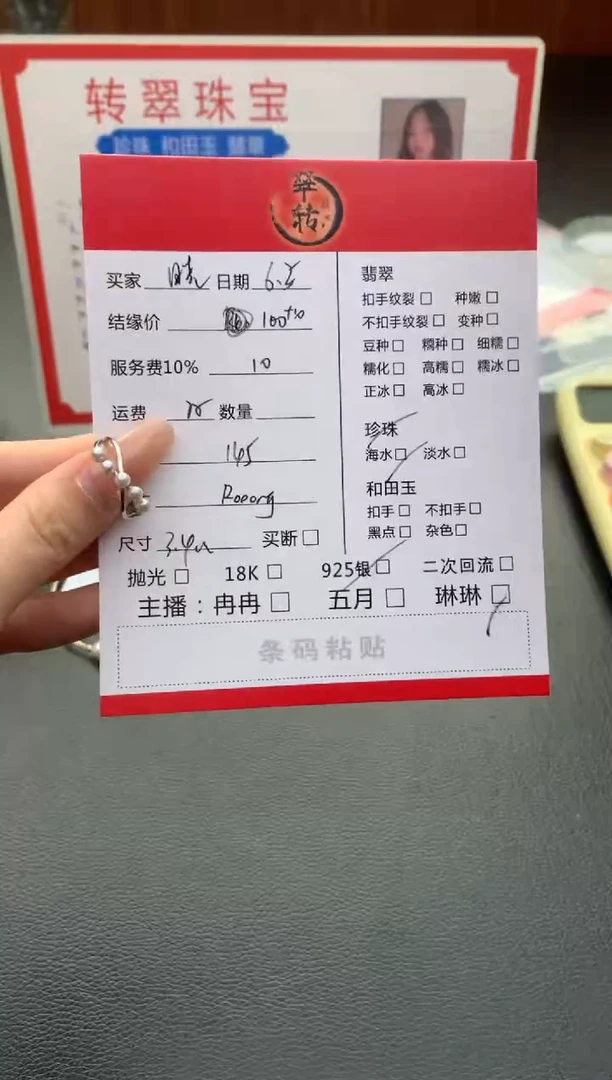 转翠珠宝
珍珠 和田玉 翡翠
翠转
买家 晓 日期 6.
结缘价 100+10
服务费10% 10
运费 数量
145
尺寸 买断
抛光 18K 925银 二次回流
主播：冉冉 五月 琳琳
条码粘贴
翡翠
扣手纹裂 种嫩
不扣手纹裂 变种
豆种 糯种 细糯
糯化 高糯 糯冰
正冰 高冰
珍珠
海水 淡水
和田玉
扣手 不扣手
黑点 杂色